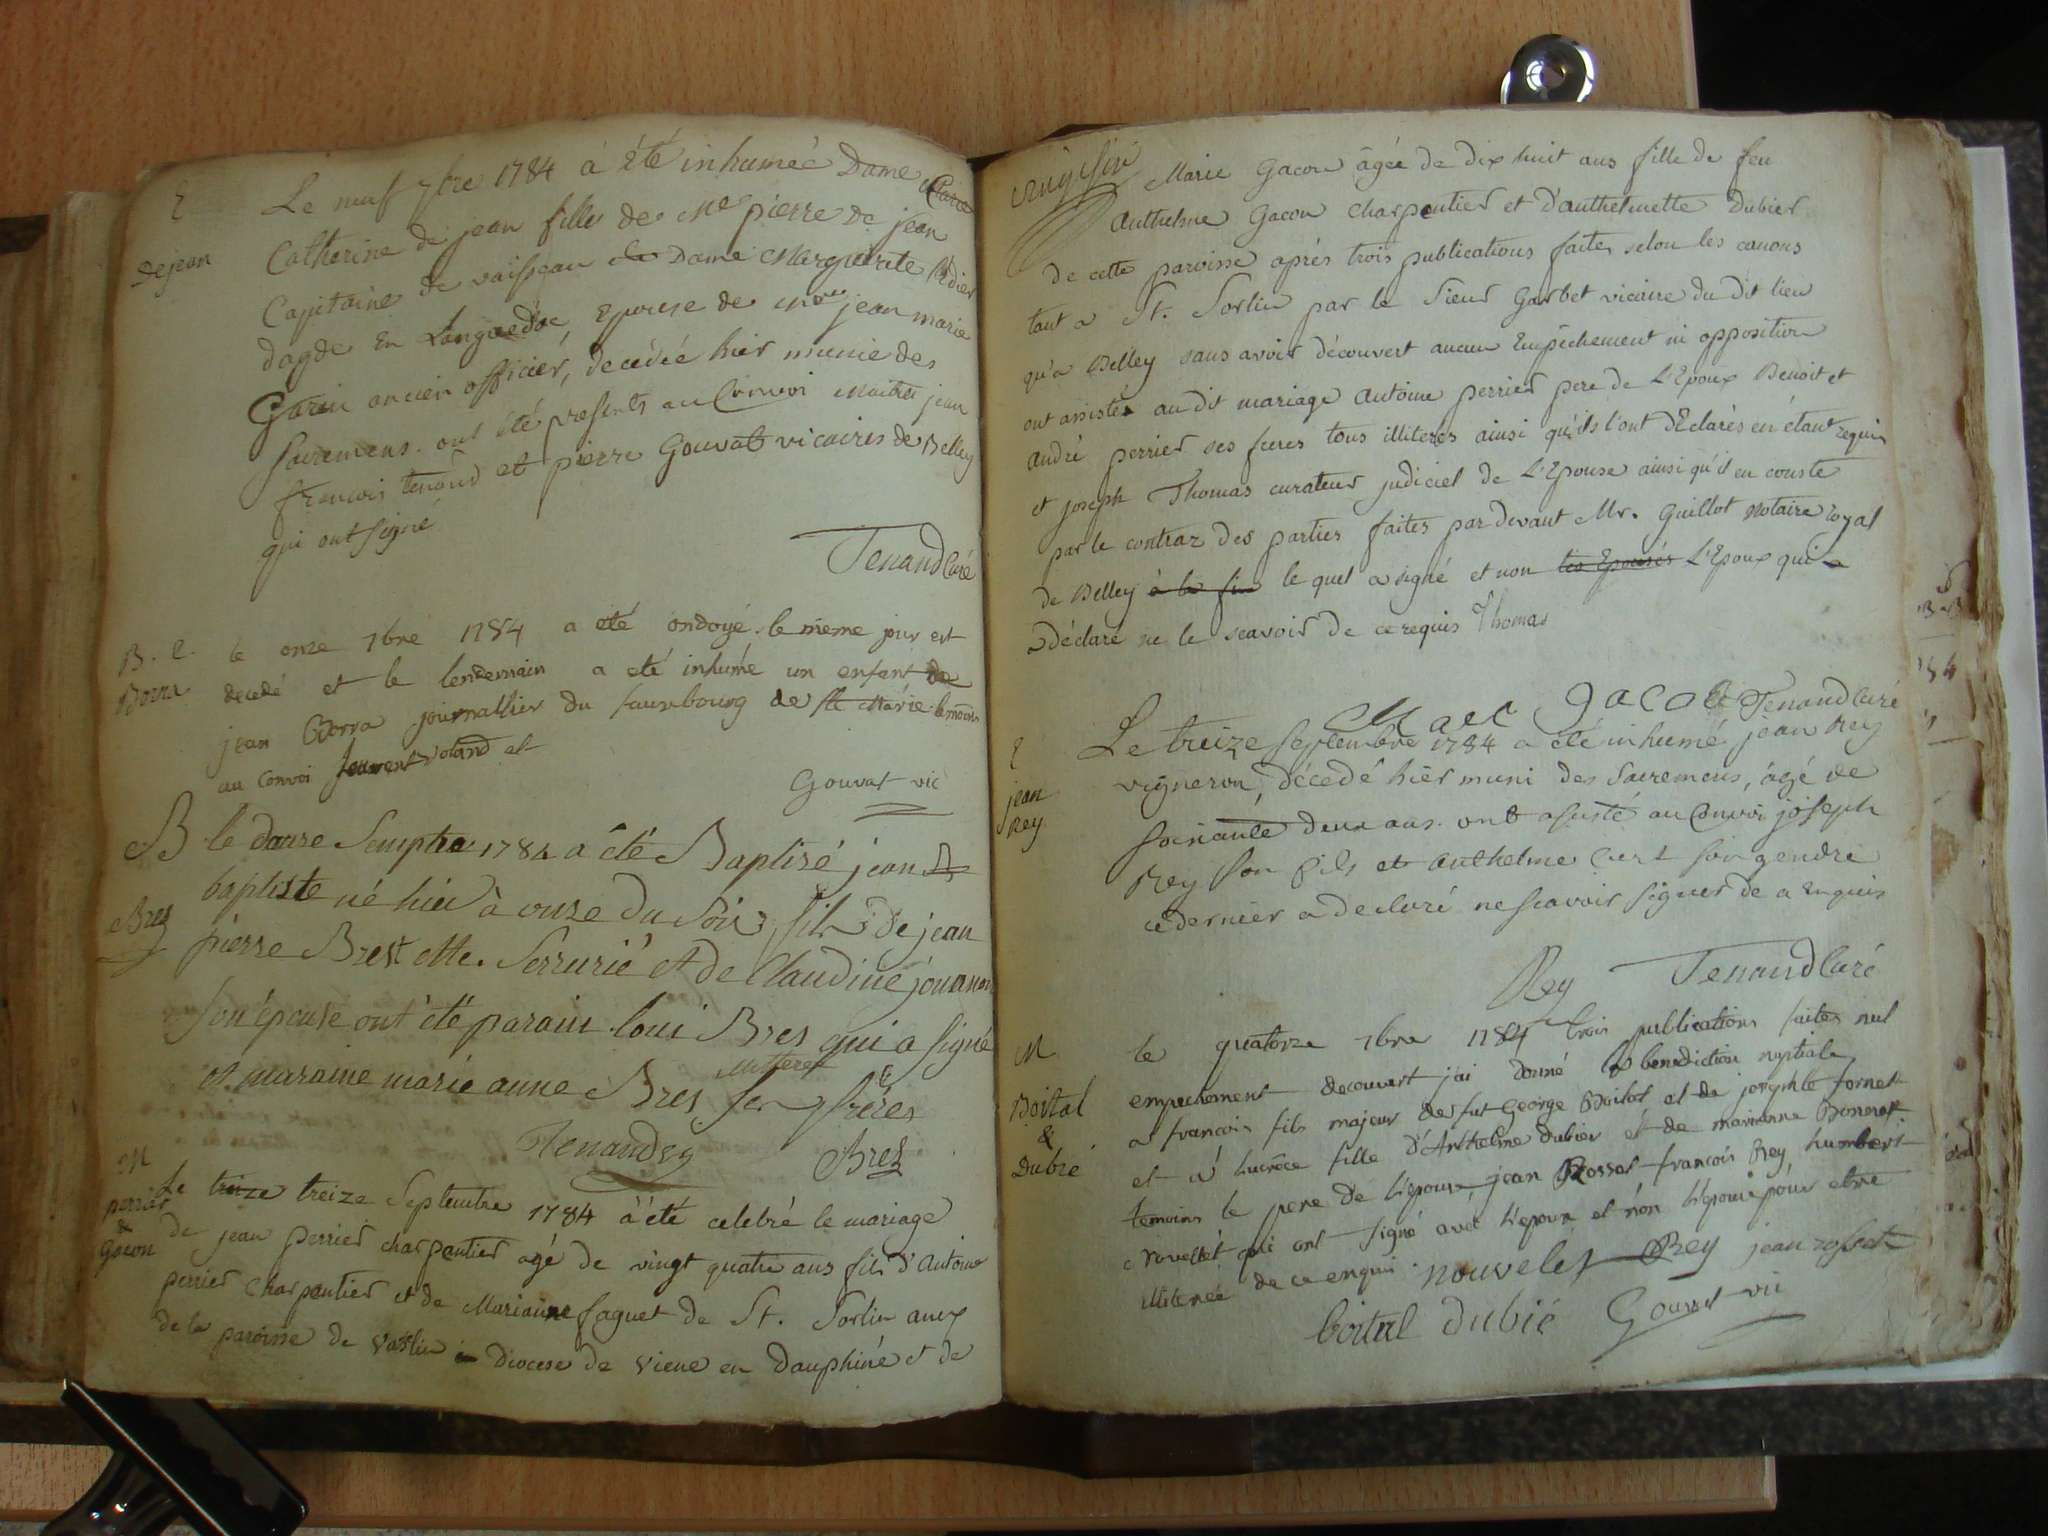 E
dejean
Le neuf 7bre 1784 à été inhumée Dame
Catherine de jean fille de Me pierre de jean
Capitaine de vaisseau Dame Marguerite Didier
dagde En Languedoc, Epouse de jean marie
Garin ancien officier, decédée hier munie des
sacremens. ont été presents au Convoi Maitres jean
francois tenand et pierre Gouvat vicaires de Belley
qui ont signé
Tenand Curé
B. E.
Borra
le onze 7bre 1784 a été ondoyé le même jour est
decedé et le lendemain a eté inhumé un enfant de
jean Borra journallier du fauxbourg de Ste Marie temoins
au convoi et
Gouvat vic
B
Bres
le douze Semptre 1784 a été Baptisé jean
baptiste né hier à onze du soir, fils de jean
pierre Brest Serrurié et de Claudine jouanon
son épouse ont été parain loui Bres qui a signé
et maraine marie anne Bres frères
Bres
M
perrier
&
Gacon
Le treize treize Septembre 1784 à été celebré le mariage
de jean perrier charpentier agé de vingt quatre ans fils d'Antoine
perrier Charpentier et de Marianne faguet de St. Sorlin aux
de la paroisse de Diocese de Viene en Dauphiné et de
vingt six
Marie Gacon âgée de dix huit ans fille de feu
Anthelme Gacon Charpentier et d'anthelmette Dubier
de cette paroisse aprés trois publications faites selon les canons
tant a St. Sorlin par le Sieur Garbet vicaire du dit lieu
qu'a Belley sans avoir découvert aucun Empêchement ni opposition
ont assistés au dit mariage Antoine perrier pere de L'Epoux Benoit et
André perrier ses freres tous illiteres ainsi qu'ils l'ont Déclarés en étant requis
et joseph Thomas curateur judiciel de L'Epouse ainsi qu'il en conste
par le contrat des parties faites par devant Mr. Guillot Notaire royal
de Belley à la fin le quel a signé et non les Epouses L'Epoux qui a
déclaré ne le scavoir de ce requis Thomas
gacon Tenand Curé
E
jean
Rey
Le treize Septembre 1784 a été inhumé jean Rey
vigneron, décedé hier muni des Sacremens, âgé de
soixante deux ans. ont assisté au Convoi joseph
Rey son fils et anthelme Curt son gendre
ce dernier a declaré ne scavoir signer de ce Enquis
Rey Tenand Curé
M
Boital
&
Dubié
le quatorze 7bre 1784 trois publications faites nul
empechement decouvert j'ai donné la benediction nuptiale
a francois fils majeur de fut George Boital et de josephte fornet
et a lucrèce fille d'Anthelme dubier et de marianne Bonerot
temoins le pere de l'epouse, jean Rosset francois Rey humbert
novellet qui ont signé avec l'epoux et non l'epouse pour etre
illiterée de ce enqui. nouvelet Rey jean rosset
boital dubié Gouvat vic